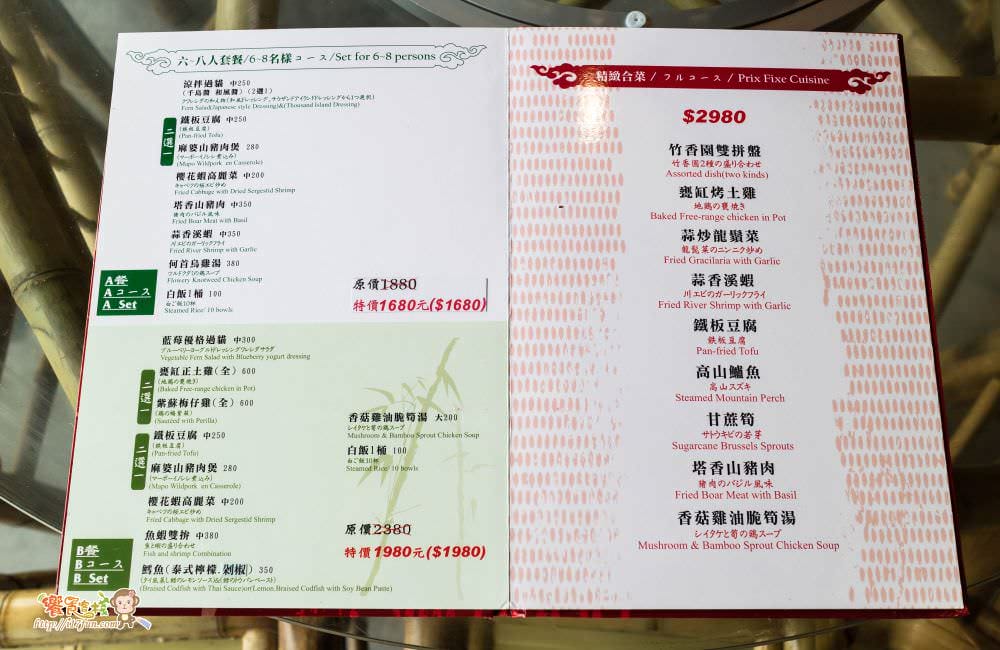 六~八人套餐/6~8名樣コース/Set for 6~8 persons
涼拌過貓 中250
(千島醬 和風醬)(2選1)
Fern Salad(Japanese style Dressing)&(Thousand Island Dressing)
二選一
鐵板豆腐 中250
(鉄板豆腐)
(Pan-fried Tofu)
麻婆山豬肉煲 280
(Mapo Wildpork en Casserole)
櫻花蝦高麗菜 中200
キャベツの桜エビ炒め
Fried Cabbage with Dried Sergestid Shrimp
塔香山豬肉 中350
猪肉のバジル風味
Fried Boar Meat with Basil
蒜香溪蝦 中350
川エビのガーリックフライ
Fried River Shrimp with Garlic
何首烏雞湯 380
ツルドクダミの鶏スープ
Flowery Knotweed Chicken Soup
白飯1桶 100
白ご飯10杯
Steamed Rice/ 10 bowls
A餐
Aコース
A Set
原價1880
特價1680元($1680)
藍莓優格過貓 中300
Vegetable Fern Salad with Blueberry yogurt dressing
二選一
甕缸正土雞(全) 600
(地鶏の甕焼き)
(Baked Free-range chicken in Pot)
紫蘇梅仔雞(全) 600
(Sauteed with Perilla)
二選一
鐵板豆腐 中250
(鉄板豆腐)
(Pan-fried Tofu)
麻婆山豬肉煲 280
(Mapo Wildpork en Casserole)
櫻花蝦高麗菜 中200
キャベツの桜エビ炒め
Fried Cabbage with Dried Sergestid Shrimp
魚蝦雙拚 中380
魚と蝦の盛り合わせ
Fish and shrimp Combination
鱈魚(泰式檸檬.剁椒) 350
(Braised Codfish with Thai Sauce)or(Lemon.Braised Codfish with Soy Bean Paste)
香菇雞油脆筍湯 大200
シイタケと筍の鶏スープ
Mushroom & Bamboo Sprout Chicken Soup
白飯1桶 100
白ご飯10杯
Steamed Rice/ 10 bowls
B餐
Bコース
B Set
原價2380
特價1980元($1980)
精緻合菜 / フルコース / Prix Fixe Cuisine
$2980
竹香園雙拼盤
竹香園2種の盛り合わせ
Assorted dish(two kinds)
甕缸烤土雞
地鶏の甕焼き
Baked Free-range chicken in Pot
蒜炒龍鬚菜
龍髭菜のニンニク炒め
Fried Gracilaria with Garlic
蒜香溪蝦
川エビのガーリックフライ
Fried River Shrimp with Garlic
鐵板豆腐
鉄板豆腐
Pan-fried Tofu
高山鱸魚
高山スズキ
Steamed Mountain Perch
甘蔗筍
サトウキビの若芽
Sugarcane Brussels Sprouts
塔香山豬肉
猪肉のバジル風味
Fried Boar Meat with Basil
香菇雞油脆筍湯
シイタケと筍の鶏スープ
Mushroom & Bamboo Sprout Chicken Soup